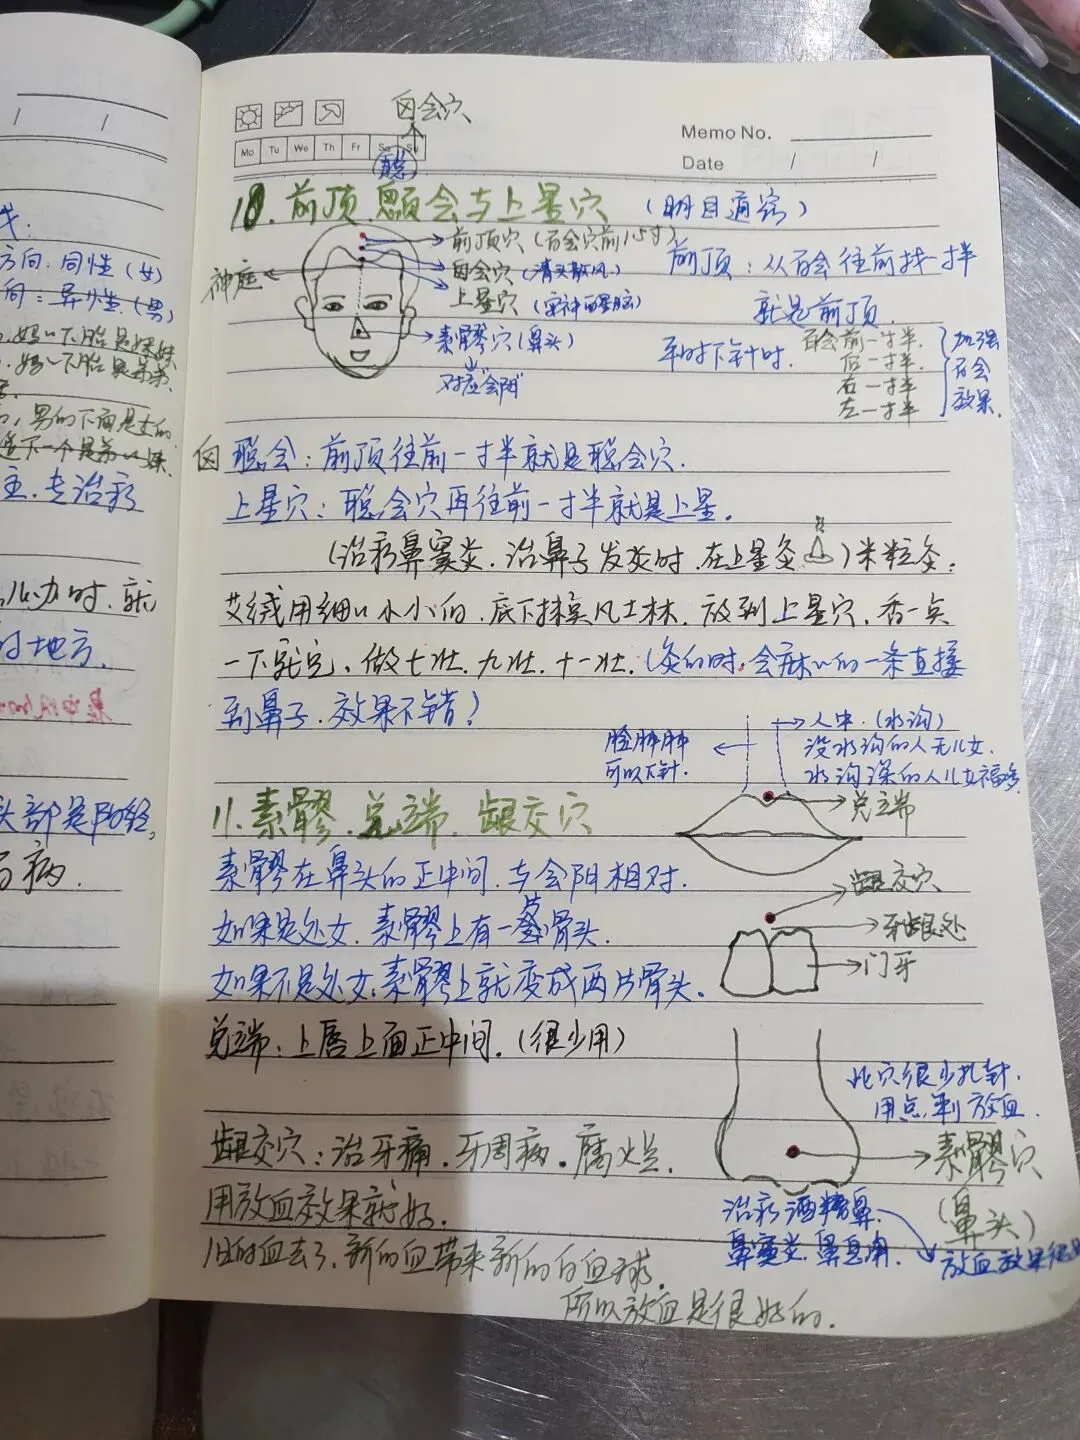 囟会穴
Memo No.
Mo Tu We Th Fr Sa Su
Date / /
10. 前顶 囟会与上星穴 (明目通窍)
前顶穴 (百会穴前1.5寸)
神庭
囟会穴 (清头散风)
上星穴 (安神醒脑)
素髎穴 (鼻头)
对应"会阴"
前顶：从百会往前找一寸半
就是前顶.
平时下针时.
百会前一寸半
后一寸半.
右一寸半
左一寸半
加强
百会
效果.
囟 聪会：前顶往前一寸半就是聪会穴.
上星穴：聪会穴再往前一寸半就是上星.
(治疗鼻窦炎.治鼻子发炎时.在上星灸)米粒灸.
艾绒用细小小的.底下抹凡士林.放到上星穴.香一点
一下就它.做七壮.九壮.十一壮.(灸的时.会麻的一条直接
到鼻子.效果不错！
人中.(水沟)
没水沟的人无儿女.
水沟深的人儿女福多.
脸肿肿
可以下针.
兑端
11.素髎.兑端.龈交穴
素髎在鼻头的正中间.与会阴相对.
如果是处女.素髎上有一整骨头.
如果不是处女.素髎上就变成两片骨头.
龈交穴
牙龈处
门牙
兑端：上唇上面正中间.(很少用)
此穴很少扎针.
用点刺放血.
素髎穴
(鼻头)
龈交穴：治牙痛.牙周病.腐烂.
用放血效果就好.
旧的血去了.新的血带来新的白血球.
所以放血是很好的.
治疗酒糟鼻.
鼻窦炎.鼻息肉.
放血效果很
/ /
方向：同性(女)
向：异性.(男)
主.专治疗
头部是阳经,